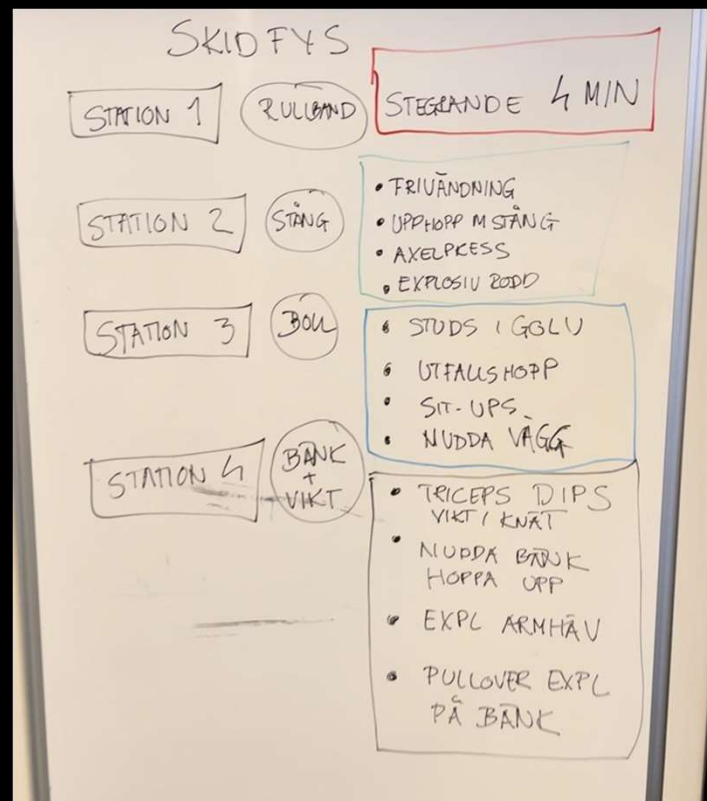 SKIDFYS
STATION 1 RULLBAND STEGRANDE 4 MIN
STATION 2 STÅNG
• FRIVÄNDNING
• UPPHOPP M STÅNG
• AXELPRESS
• EXPLOSIV RODD
STATION 3 BOLL
• STUDS I GOLV
• UTFALLSHOPP
• SIT-UPS
• NUDDA VÄGG
STATION 4 BÄNK
+
VIKT
• TRICEPS DIPS
VIKT I KNÄT
• NUDDA BÄNK
HOPPA UPP
• EXPL ARMHÄV
• PULLOVER EXPL
PÅ BÄNK